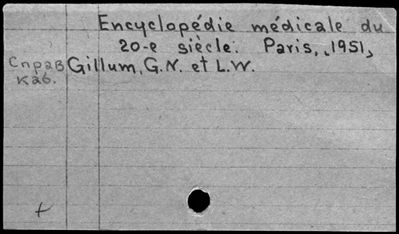 Encyclopédie médicale du
20-e siècle. Paris, 1951,
Справ Gillum, G.N. et L.W.
каб.
+